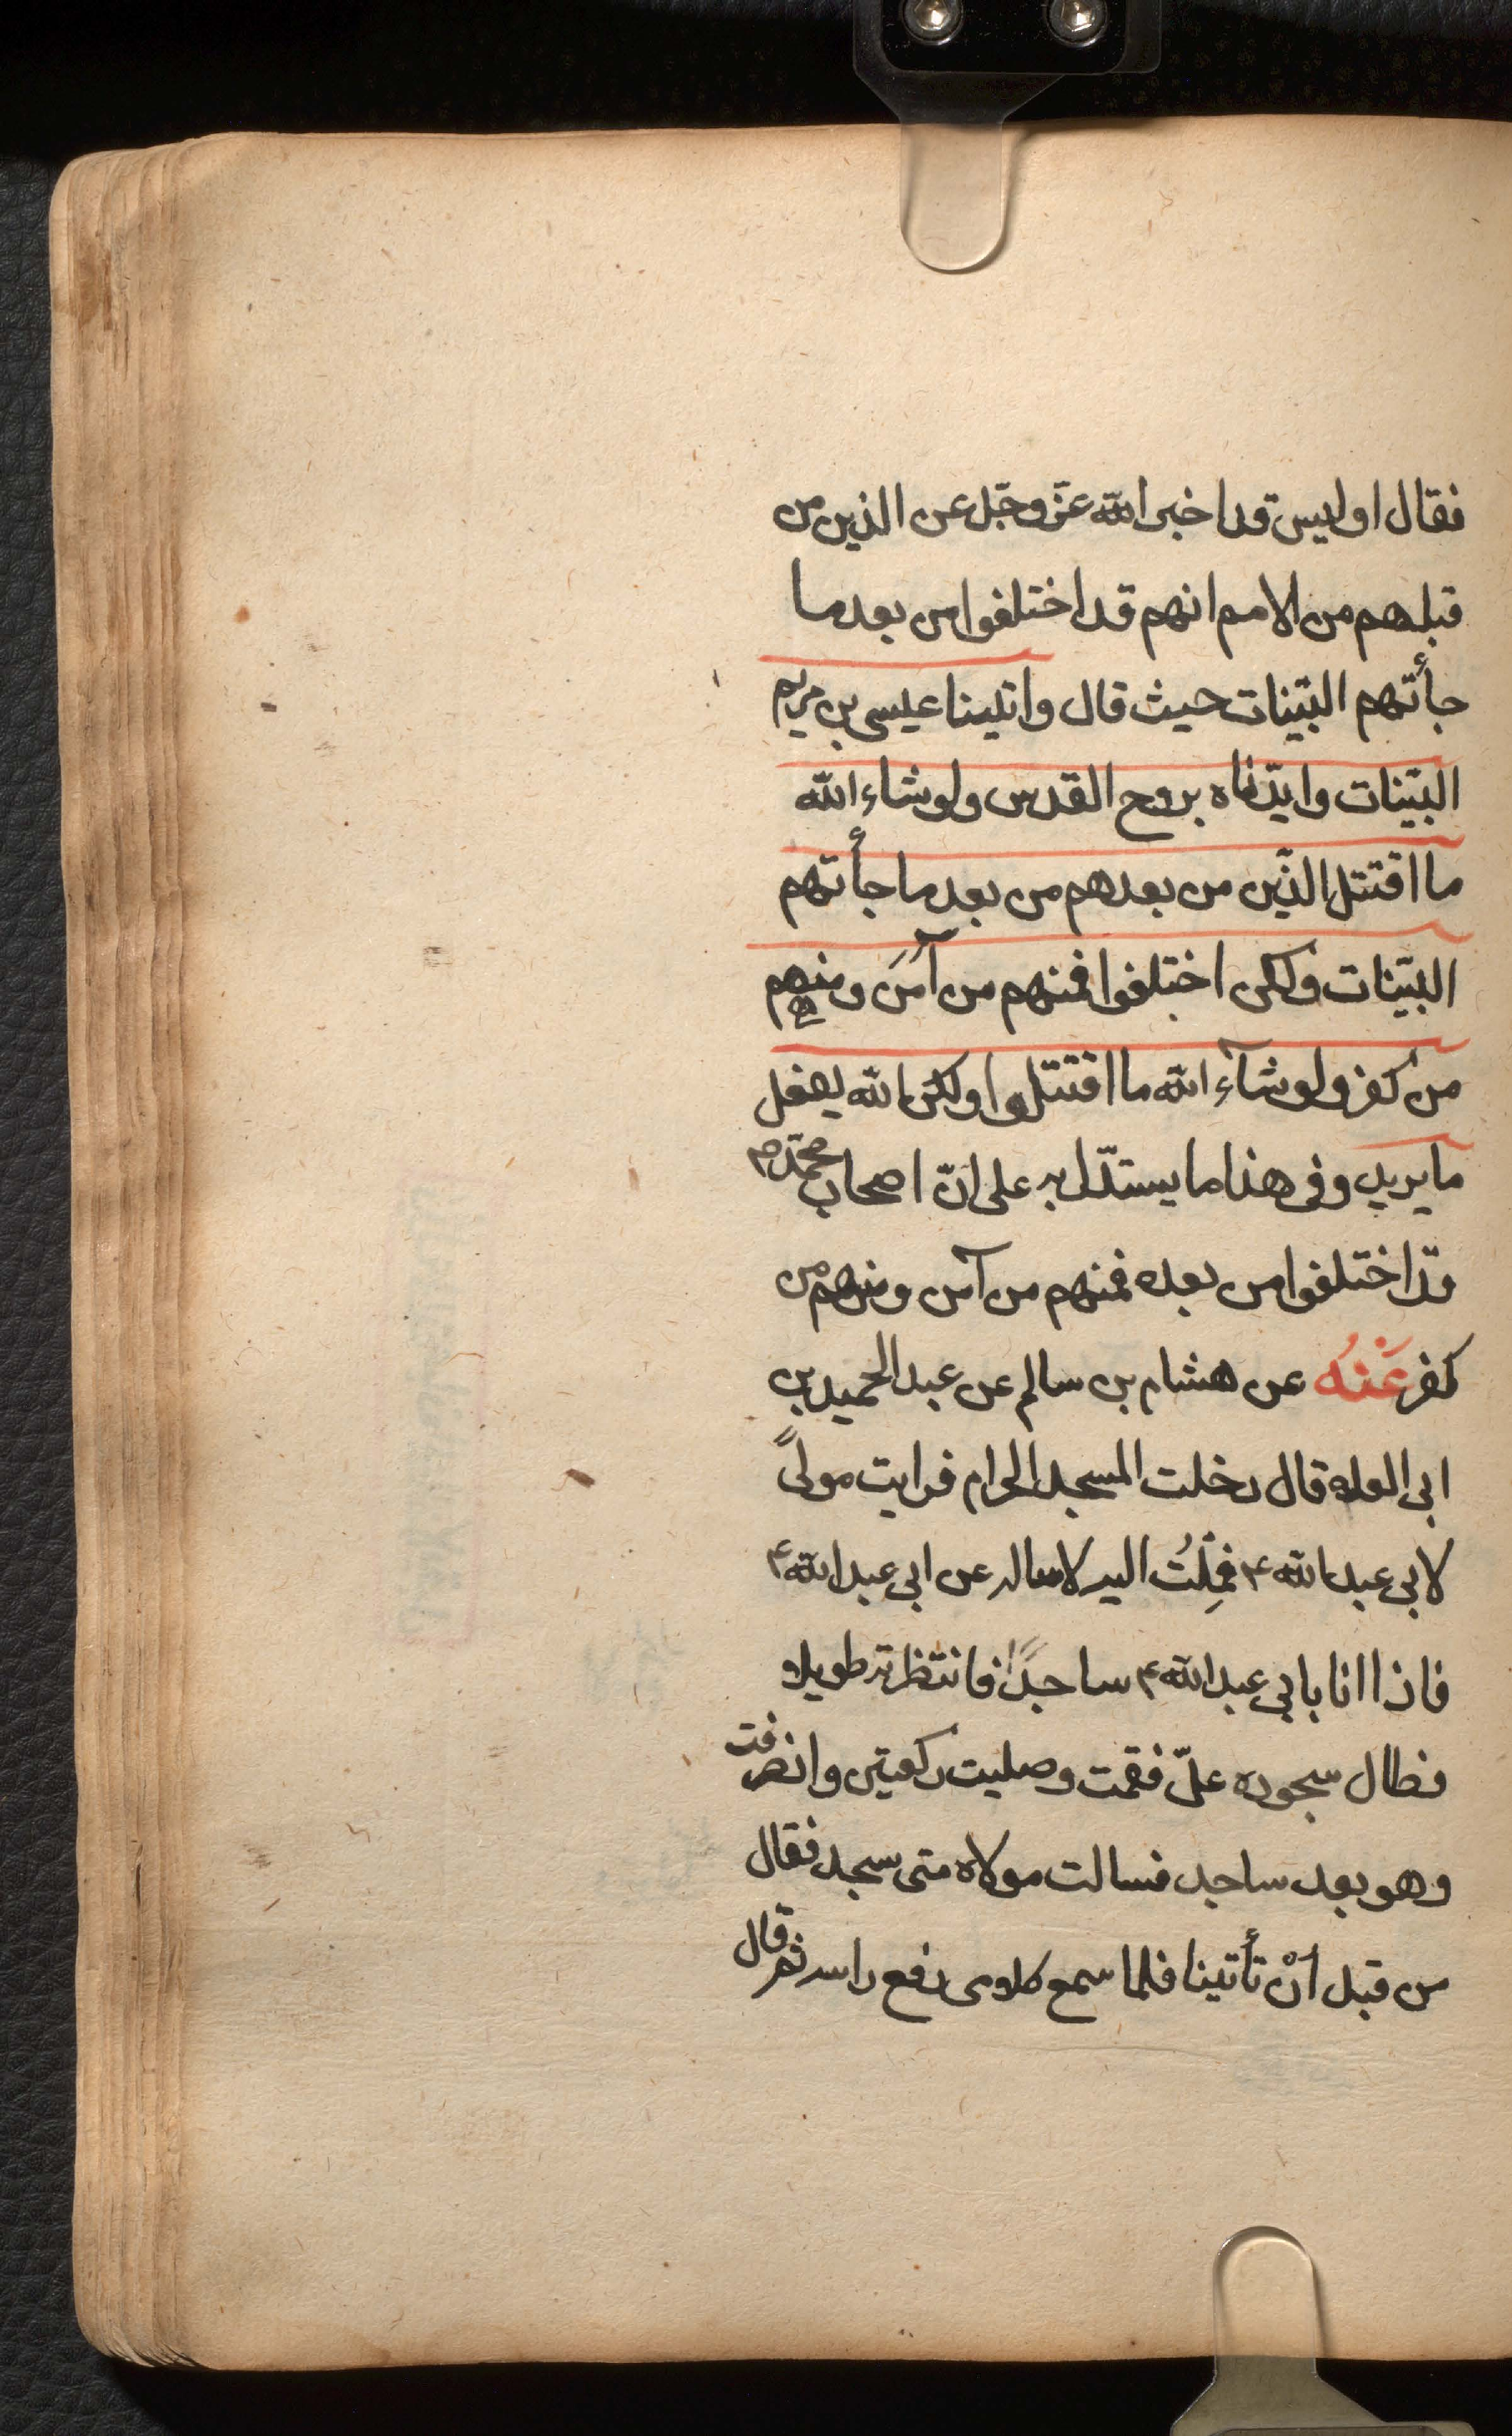 فقال اوليس قد اخبر الله عزّ وجّل عن الذين من
قبلهم من الامم انهم قد اختلفوا من بعد ما
جأتهم البيّنات حيث قال واتينا عيسى بن مريم
البيّنات وايّدناه بروح القدس ولو شاء الله
ما اقتتل الذّين من بعدهم من بعد ما جأتهم
البيّنات ولكن اختلفوا فمنهم من آمَنَ ومنهم
من كفر ولو شآء الله ما اقتتلوا ولكن الله يفعل
ما يريد وفى هذا ما يستدّل به على انّ اصحاب محمّد ص
قد اختلفوا من بعده فمنهم من آمن ومنهم من
كفر عَنْهُ عن هشام بن سالم عن عبد الحميد بن
ابى العلاء قال دخلت المسجد الحرام فرايت مولىً
لابى عبد الله ع فمِلْتُ اليه لاساله عن ابى عبد الله ع
فاذا انا بابى عبد الله ع ساجدًا فانتظرته طويلا
فطال سجوده علىّ فقمت وصليت ركعتين وانصرفت
وهو بعد ساجد فسالت مولاه متى سجد فقال
من قبل أنْ تأتينا فلما سمع كلامى رفع راسه ثم قال